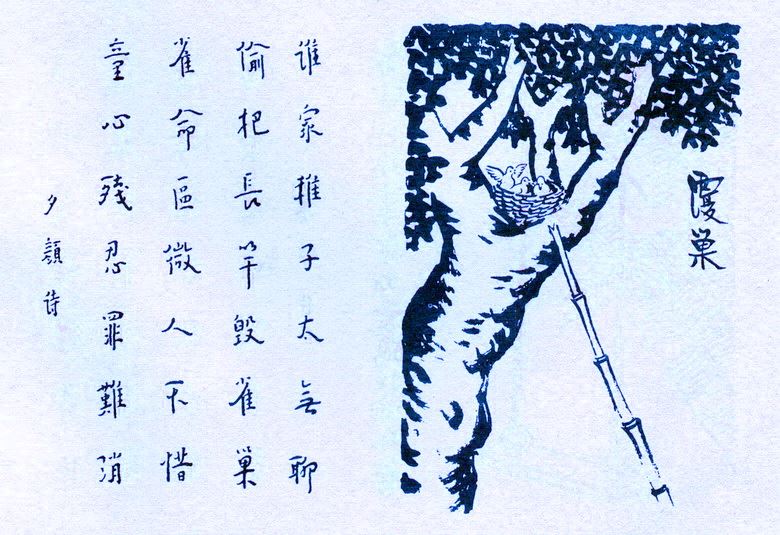 覆巢
谁家稚子太無聊
偷把長竿毀雀巢
雀命區微人不惜
童心殘忍罪難消
夕顆诗